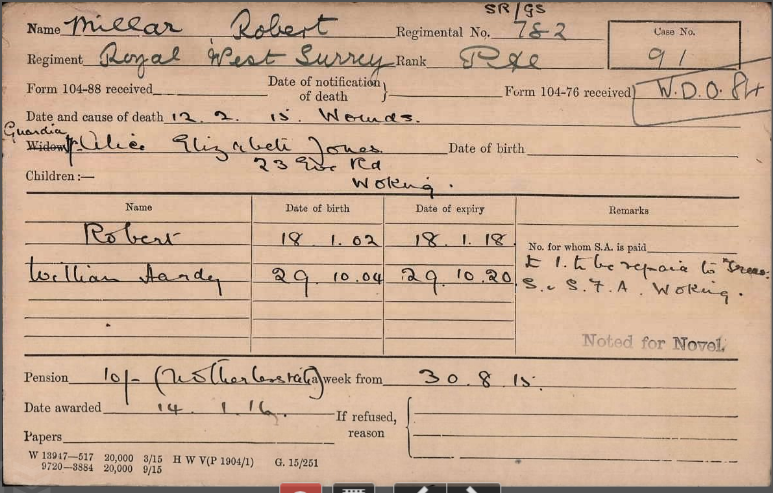 SR/GS
Name Millar Robert Regimental No. 782
Case No.
91
Regiment Royal West Surrey Rank Pte
Form 104-88 received Date of notification of death } Form 104-76 received
W.D.O. 84
Date and cause of death 12. 2. 15. Wounds.
Guardian
Widow Alice Elizabeth Jones Date of birth
23 Rd
Woking.
Children :—
Name Date of birth Date of expiry Remarks
Robert 18 . 1. 02 18 . 1. 18
No. for whom S.A. is paid
William Hardy 29. 10. 04 29. 10. 20
£ 1. to be repaid to
S. & S. F. A. Woking.
Noted for Novel.
Pension 10/- (Motherless rate) a week from 30. 8. 15.
Date awarded 14. 1. 16.
If refused, reason
Papers
W 13947—517 20,000 3/15 H W V(P 1904/1) G. 15/251
9720—3884 20,000 9/15